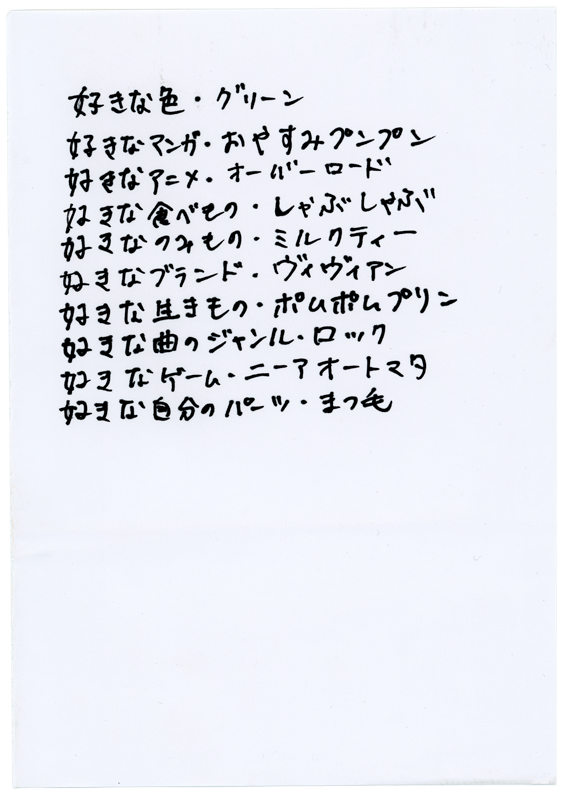 好きな色・グリーン
好きなマンガ・おやすみプンプン
好きなアニメ・オーバーロード
好きな食べもの・しゃぶしゃぶ
好きなのみもの・ミルクティー
好きなブランド・ヴィヴィアン
好きな生きもの・ポムポムプリン
好きな曲のジャンル・ロック
好きなゲーム・ニーアオートマタ
好きな自分のパーツ・まつ毛